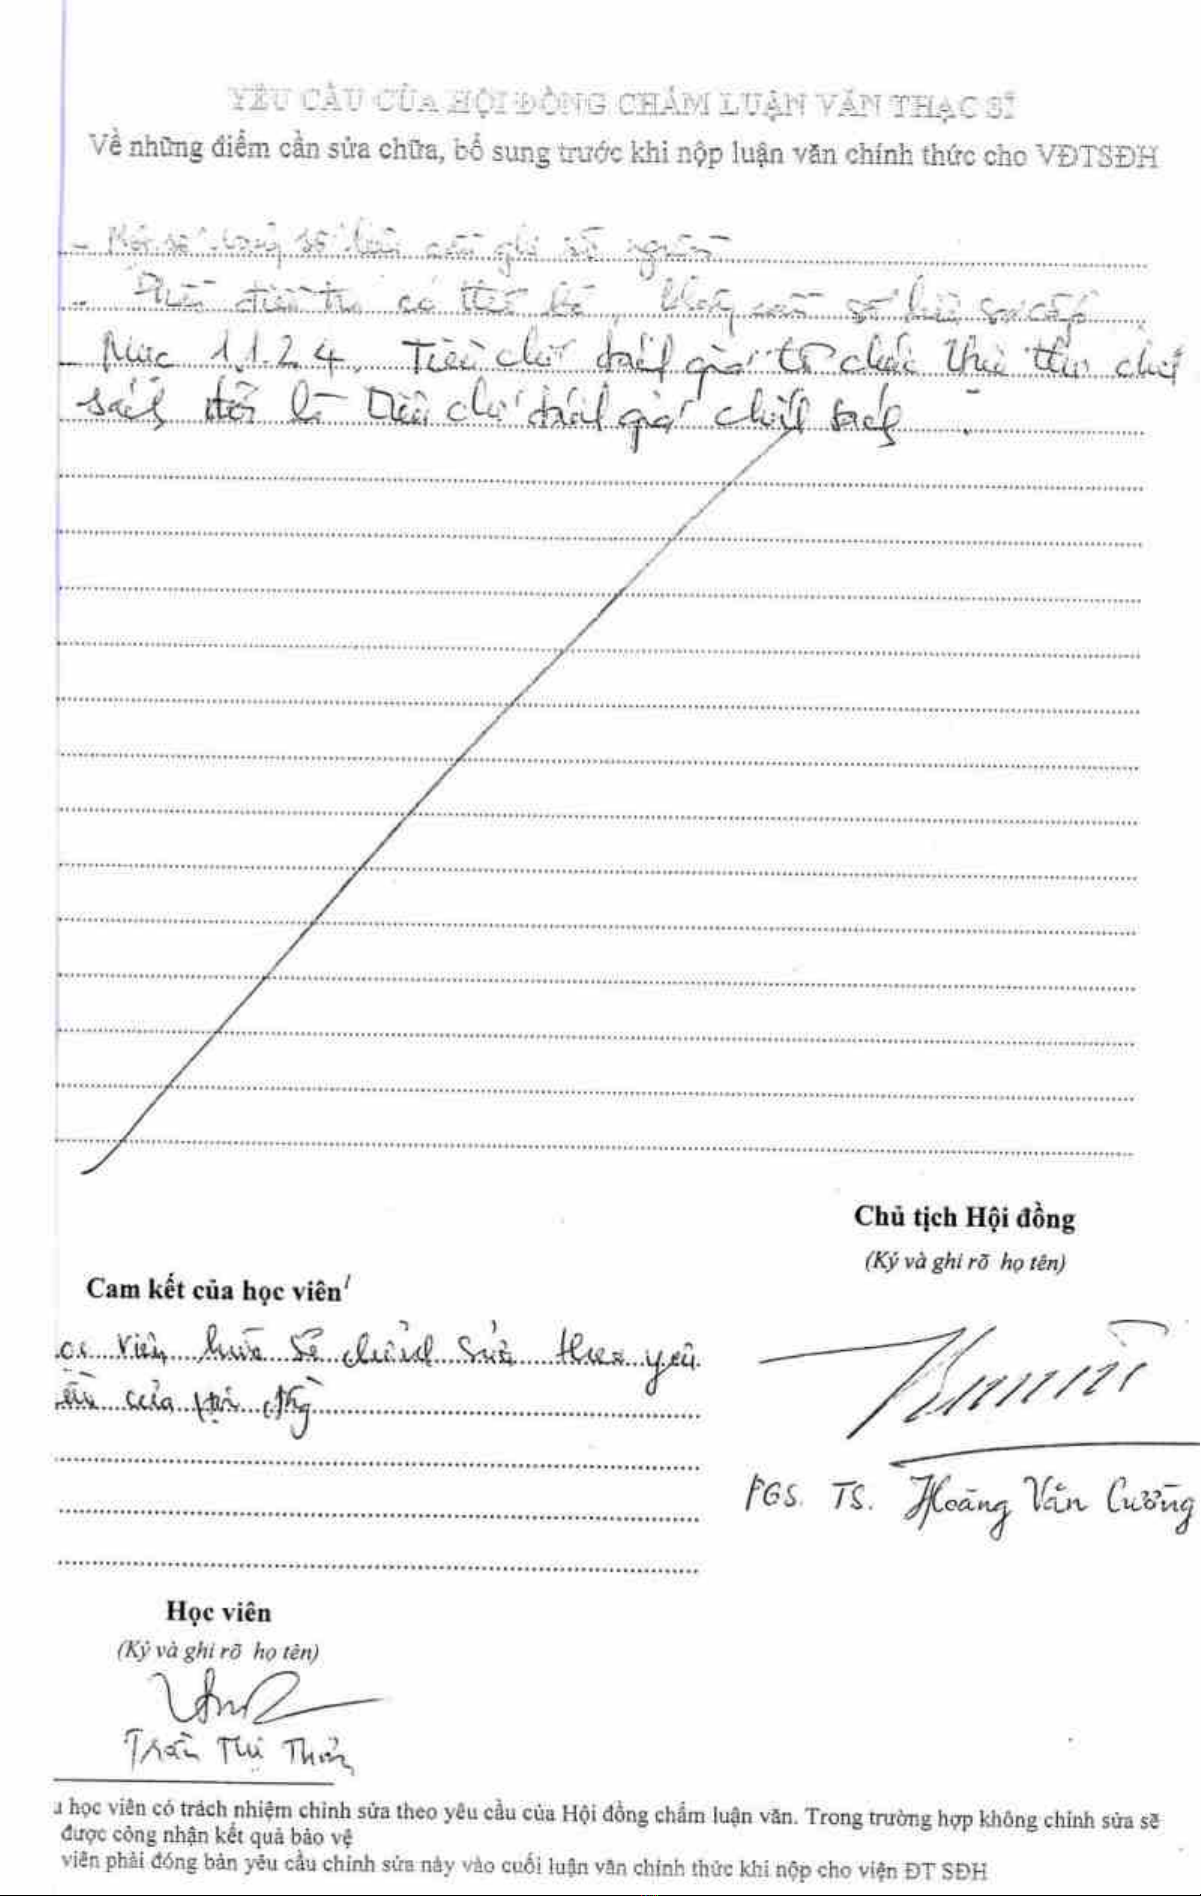 YÊU CẦU CỦA HỘI ĐỒNG CHẤM LUẬN VĂN THẠC SĨ
Về những điểm cần sửa chữa, bổ sung trước khi nộp luận văn chính thức cho VĐTSĐH
- Một số bảng số liệu cần ghi rõ nguồn
- Phiếu điều tra có thể bỏ, không cần số liệu sơ cấp
- Mục 1.1.2.4. Tiêu chí đánh giá tổ chức thực thi chính
sách đổi là Tiêu chí đánh giá chính sách.
Chủ tịch Hội đồng
(Ký và ghi rõ họ tên)
Cam kết của học viên¹
ọc viên hứa sẽ chỉnh sửa theo yêu
ầu của hội đồng
PGS. TS. Hoàng Văn Cường
Học viên
(Ký và ghi rõ họ tên)
Trần Thị
a học viên có trách nhiệm chỉnh sửa theo yêu cầu của Hội đồng chấm luận văn. Trong trường hợp không chỉnh sửa sẽ
được công nhận kết quả bảo vệ
viên phải đóng bản yêu cầu chỉnh sửa này vào cuối luận văn chính thức khi nộp cho viện ĐT SĐH